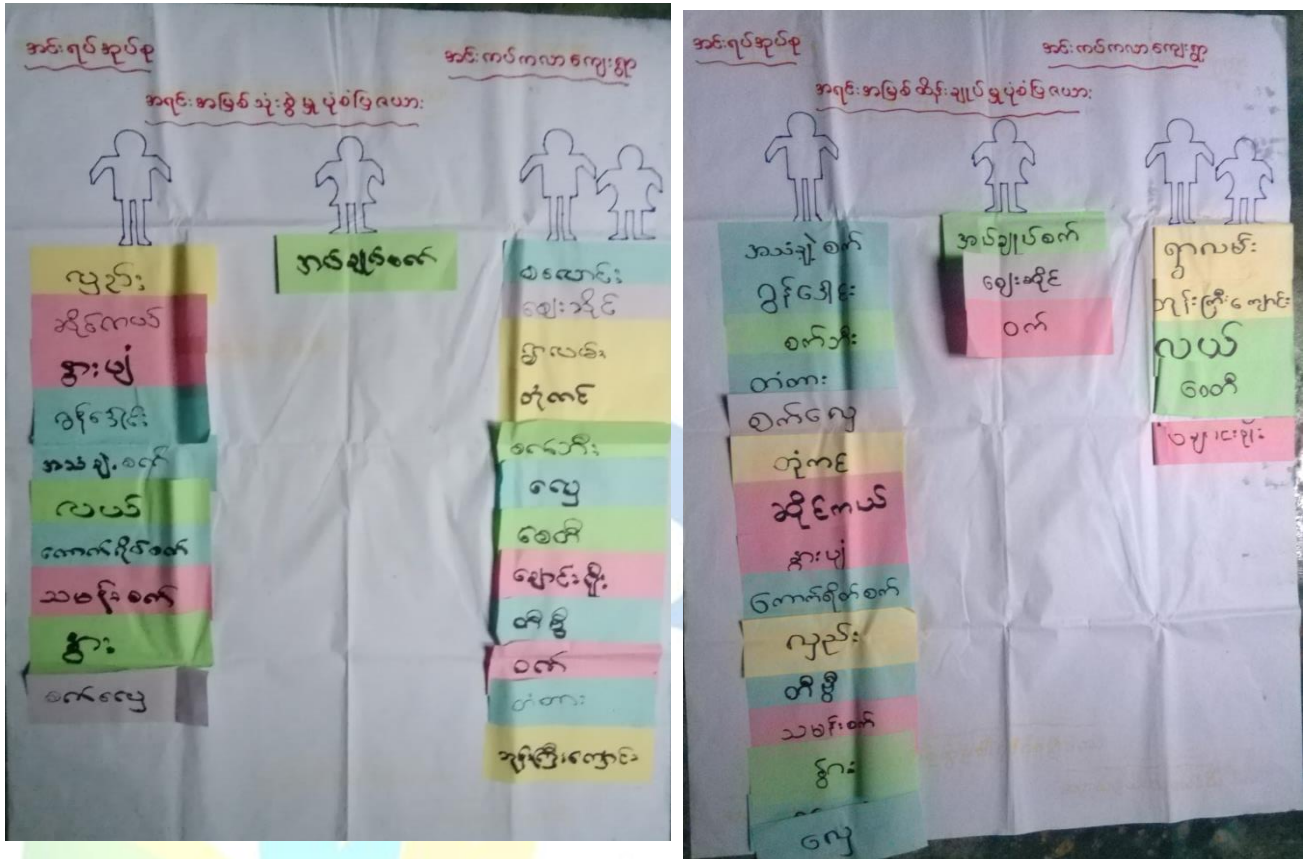 အင်းရပ်အုပ်စု
အင်းကပ်ကလာကျေးရွာ
အရင်းအမြစ်သုံးစွဲမှုပုံစံပြဇယား
လှည်း
ဆိုင်ကယ်
နွားပျံ
ဂွန်ဒေါင်း
အသံချဲ့စက်
လယ်
ကောက်ရိတ်စက်
သမန်းစက်
နွား
စက်လှေ
အပ်ချုပ်စက်
ဈေးဆိုင်
ရွာလမ်း
တုံကင်
စက်ဘီး
လှေ
စေတီ
ချောင်းရိုး
တီဗွီ
ဝက်
တံတား
ဘုန်းကြီးကျောင်း
အင်းရပ်အုပ်စု
အင်းကပ်ကလာကျေးရွာ
အရင်းအမြစ်ထိန်းချုပ်မှုပုံစံပြဇယား
အသံချဲ့စက်
ဂွန်ဒေါင်း
စက်ဘီး
တံတား
စက်လှေ
တုံကင်
ဆိုင်ကယ်
နွားပျံ
ကောက်ရိတ်စက်
လှည်း
တီဗွီ
သမန်းစက်
နွား
လှေ
အပ်ချုပ်စက်
ဈေးဆိုင်
ဝက်
ရွာလမ်း
ဘုန်းကြီးကျောင်း
လယ်
စေတီ